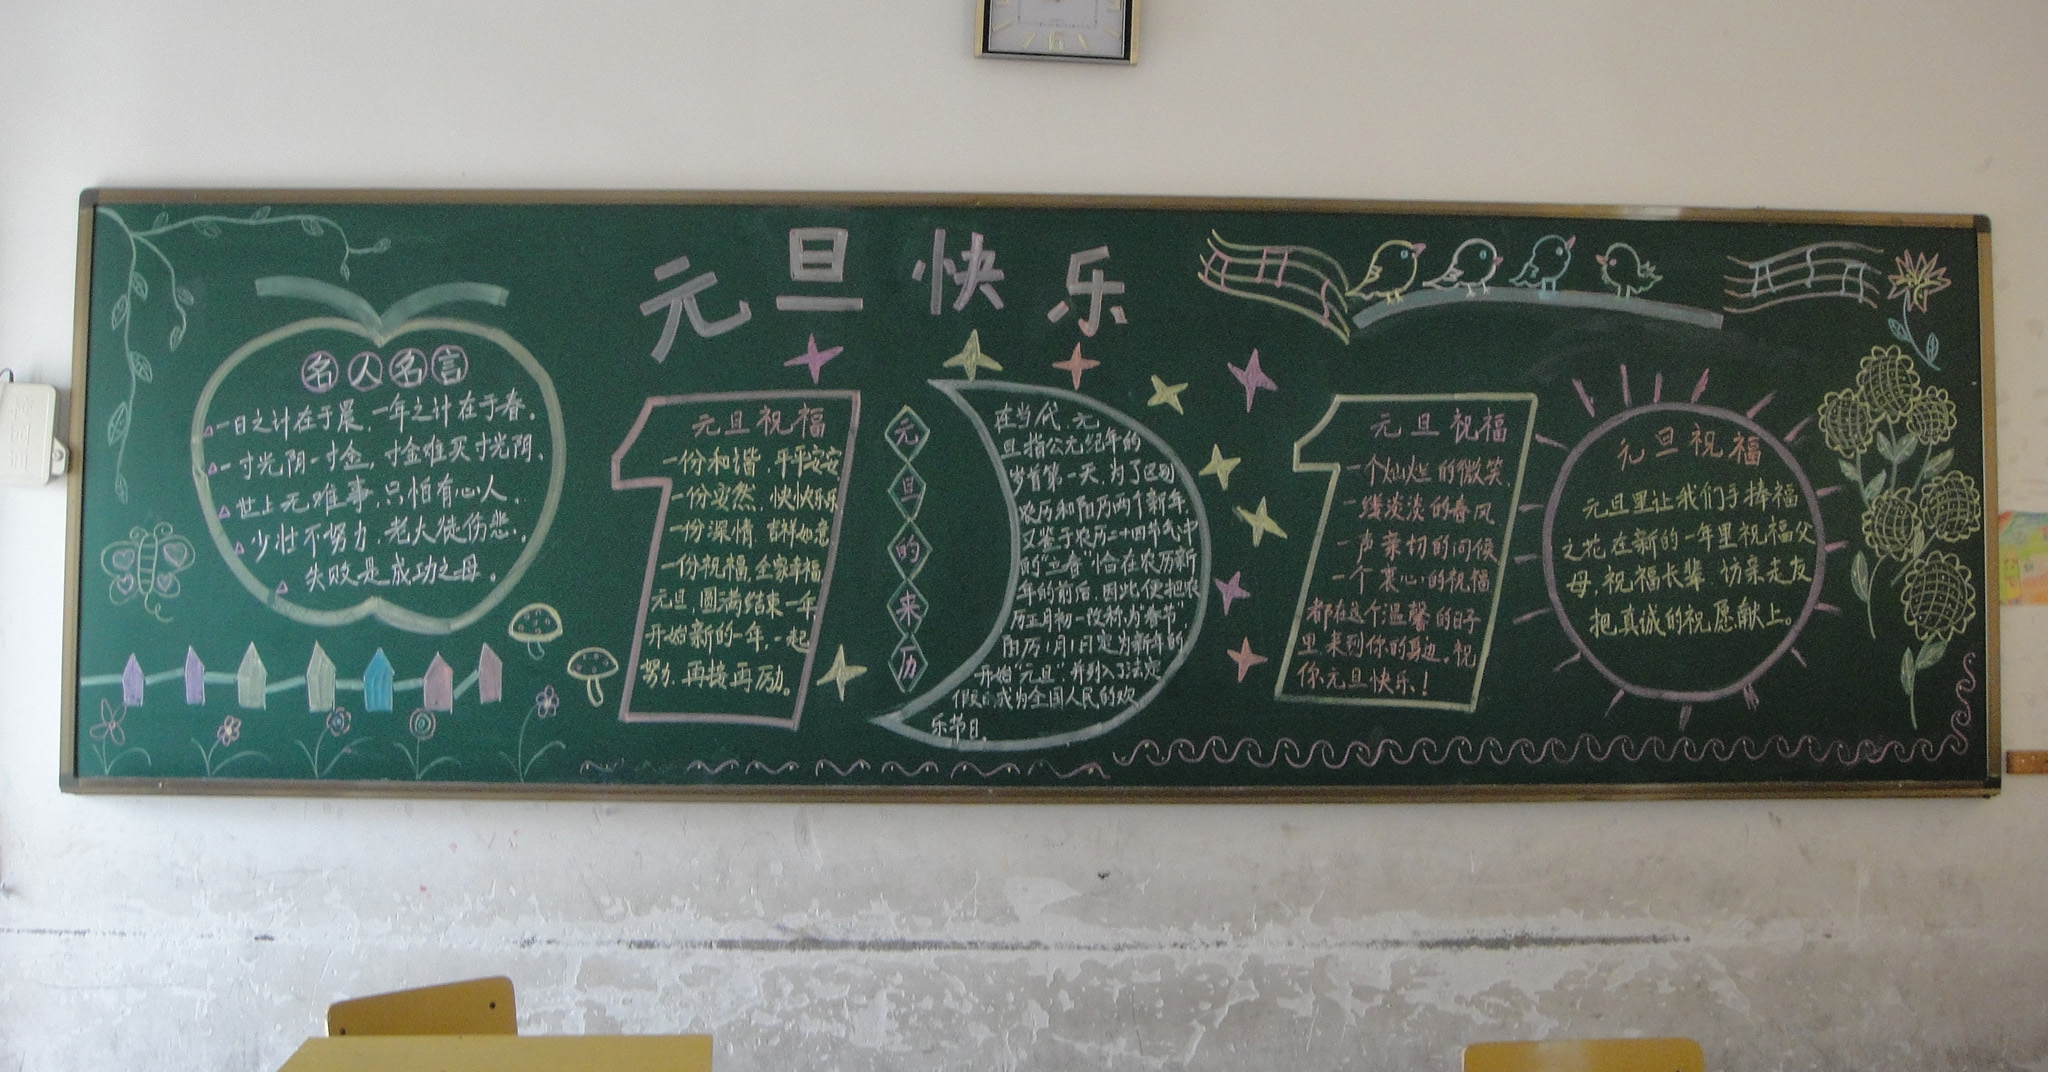 元旦快乐
名人名言
一日之计在于晨,一年之计在于春。
一寸光阴一寸金,寸金难买寸光阴。
世上无难事,只怕有心人。
少壮不努力,老大徒伤悲。
失败是成功之母。
元旦祝福
一份和谐,平平安安
一份安然,快快乐乐
一份深情,吉祥如意
一份祝福,全家幸福
元旦,圆满结束一年,
开始新的一年,一起
努力,再接再厉。
元旦的来历
在当代,元
旦指公元纪年的
岁首第一天,为了区别
农历和阳历两个新年,
又鉴于农历二十四节气中
的“立春”恰在农历新
年的前后,因此便把农
历正月初一改称为“春节”,
阳历1月1日定为新年的
开始“元旦”,并列入了法定
假日成为全国人民的欢
乐节日。
元旦祝福
一个灿烂的微笑,
一缕淡淡的春风,
一声亲切的问候
一个衷心的祝福
都在这个温馨的日子
里来到你的身边,祝
你元旦快乐!
元旦祝福
元旦里让我们手捧福
之花在新的一年里祝福父
母,祝福长辈,访亲走友
把真诚的祝愿献上。